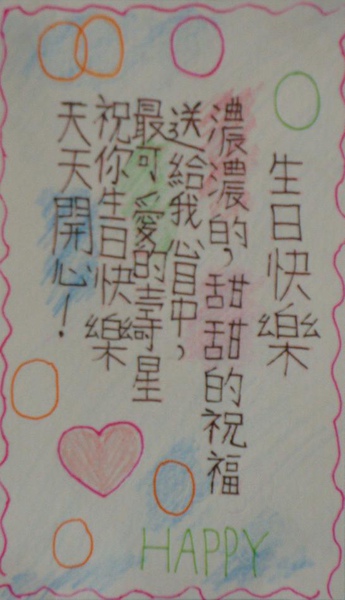 生日快樂
濃濃的,甜甜的祝福
送給我心目中,
最可愛的壽星
祝你生日快樂
天天開心!
HAPPY